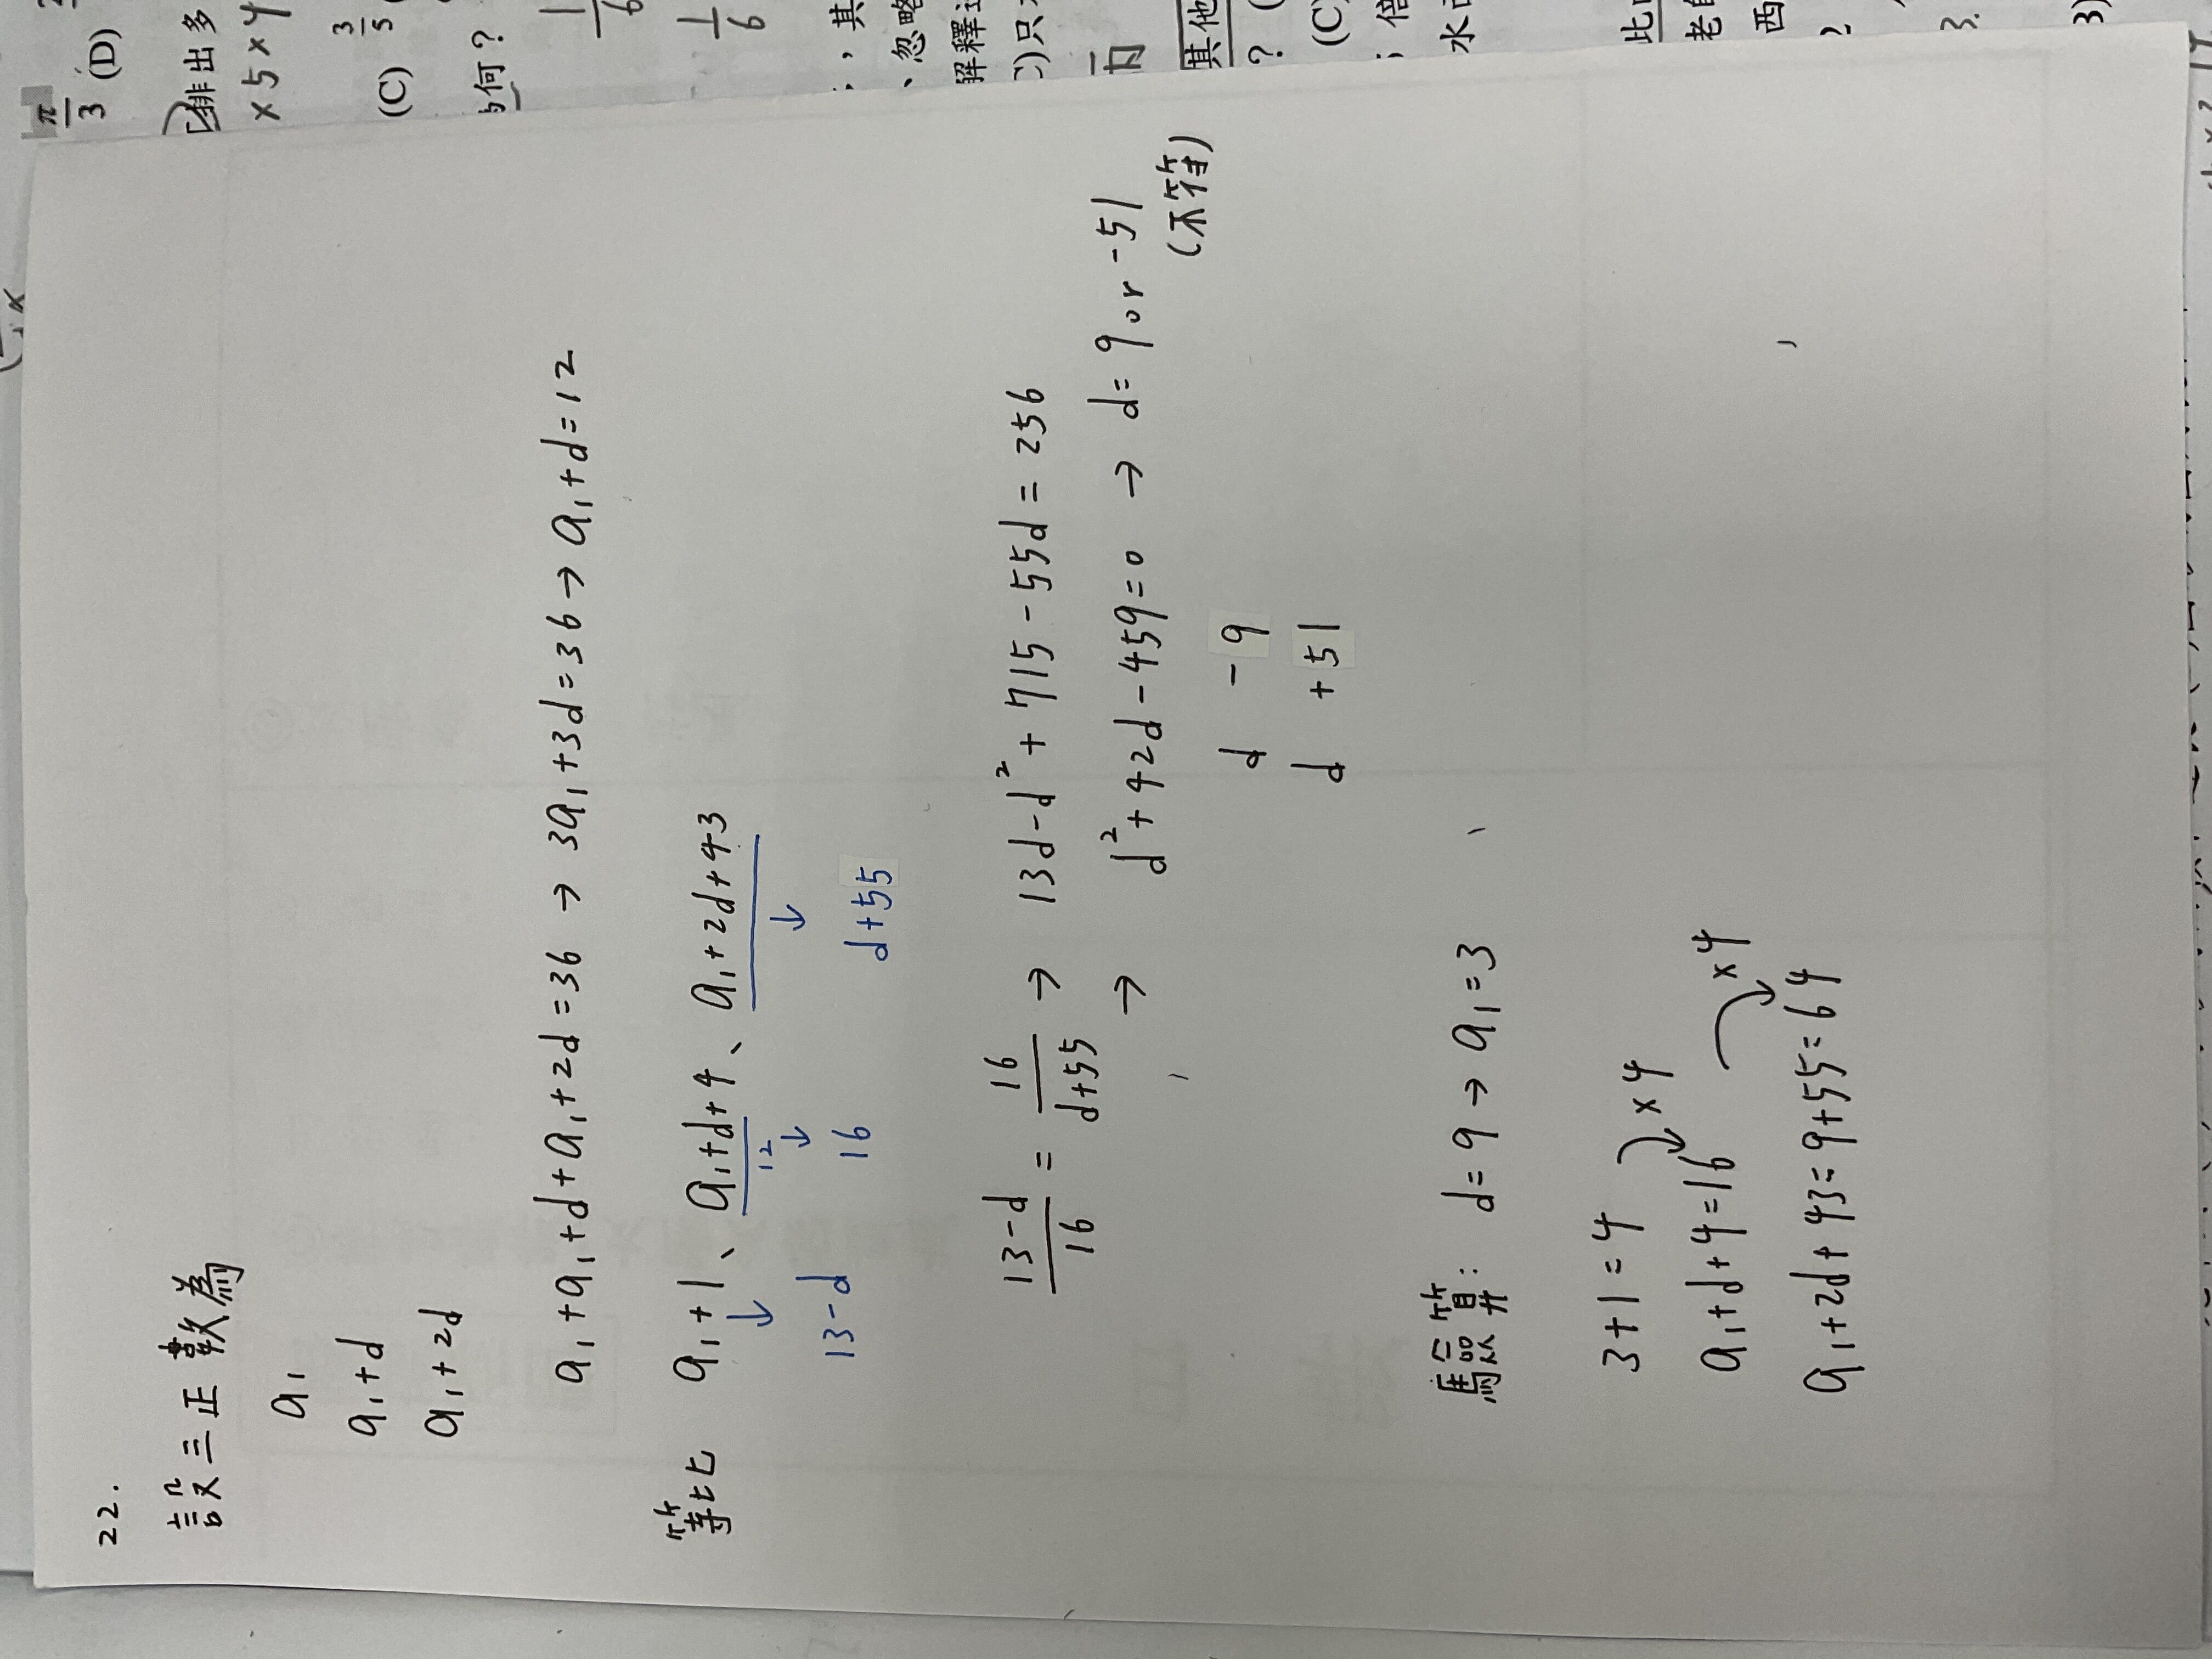 22.
設三正數為
a₁
a₁+d
a₁+2d
a₁+a₁+d+a₁+2d=36 → 3a₁+3d=36 → a₁+d=12
等比 a₁+1、a₁+d+4、a₁+2d+43
↓ 12 ↓ ↓
13-d 16 d+55
13-d/16 = 16/d+55 → 13d-d²+715-55d=256
→ d²+42d-459=0 → d=9 or -51
(不符)
d -9
d +51
驗算: d=9 → a₁=3
3+1=4
×4
a₁+d+4=16
×4
a₁+2d+43=9+55=64
π/3 (D)
排出多
×5×4
(C) 3/5
何?
1/6
1/6
;,其
、忽略
解釋
)只
其他
? (
(C)
;倍
水
此
老
西
?
3.
3)